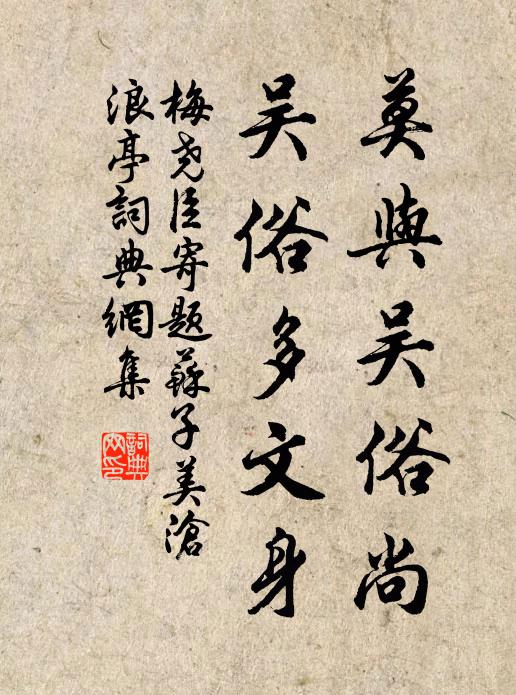 莫與吳俗尚
吳俗多文身
梅堯臣寄題蘇子美滄
浪亭詞典網集
詞典
网印